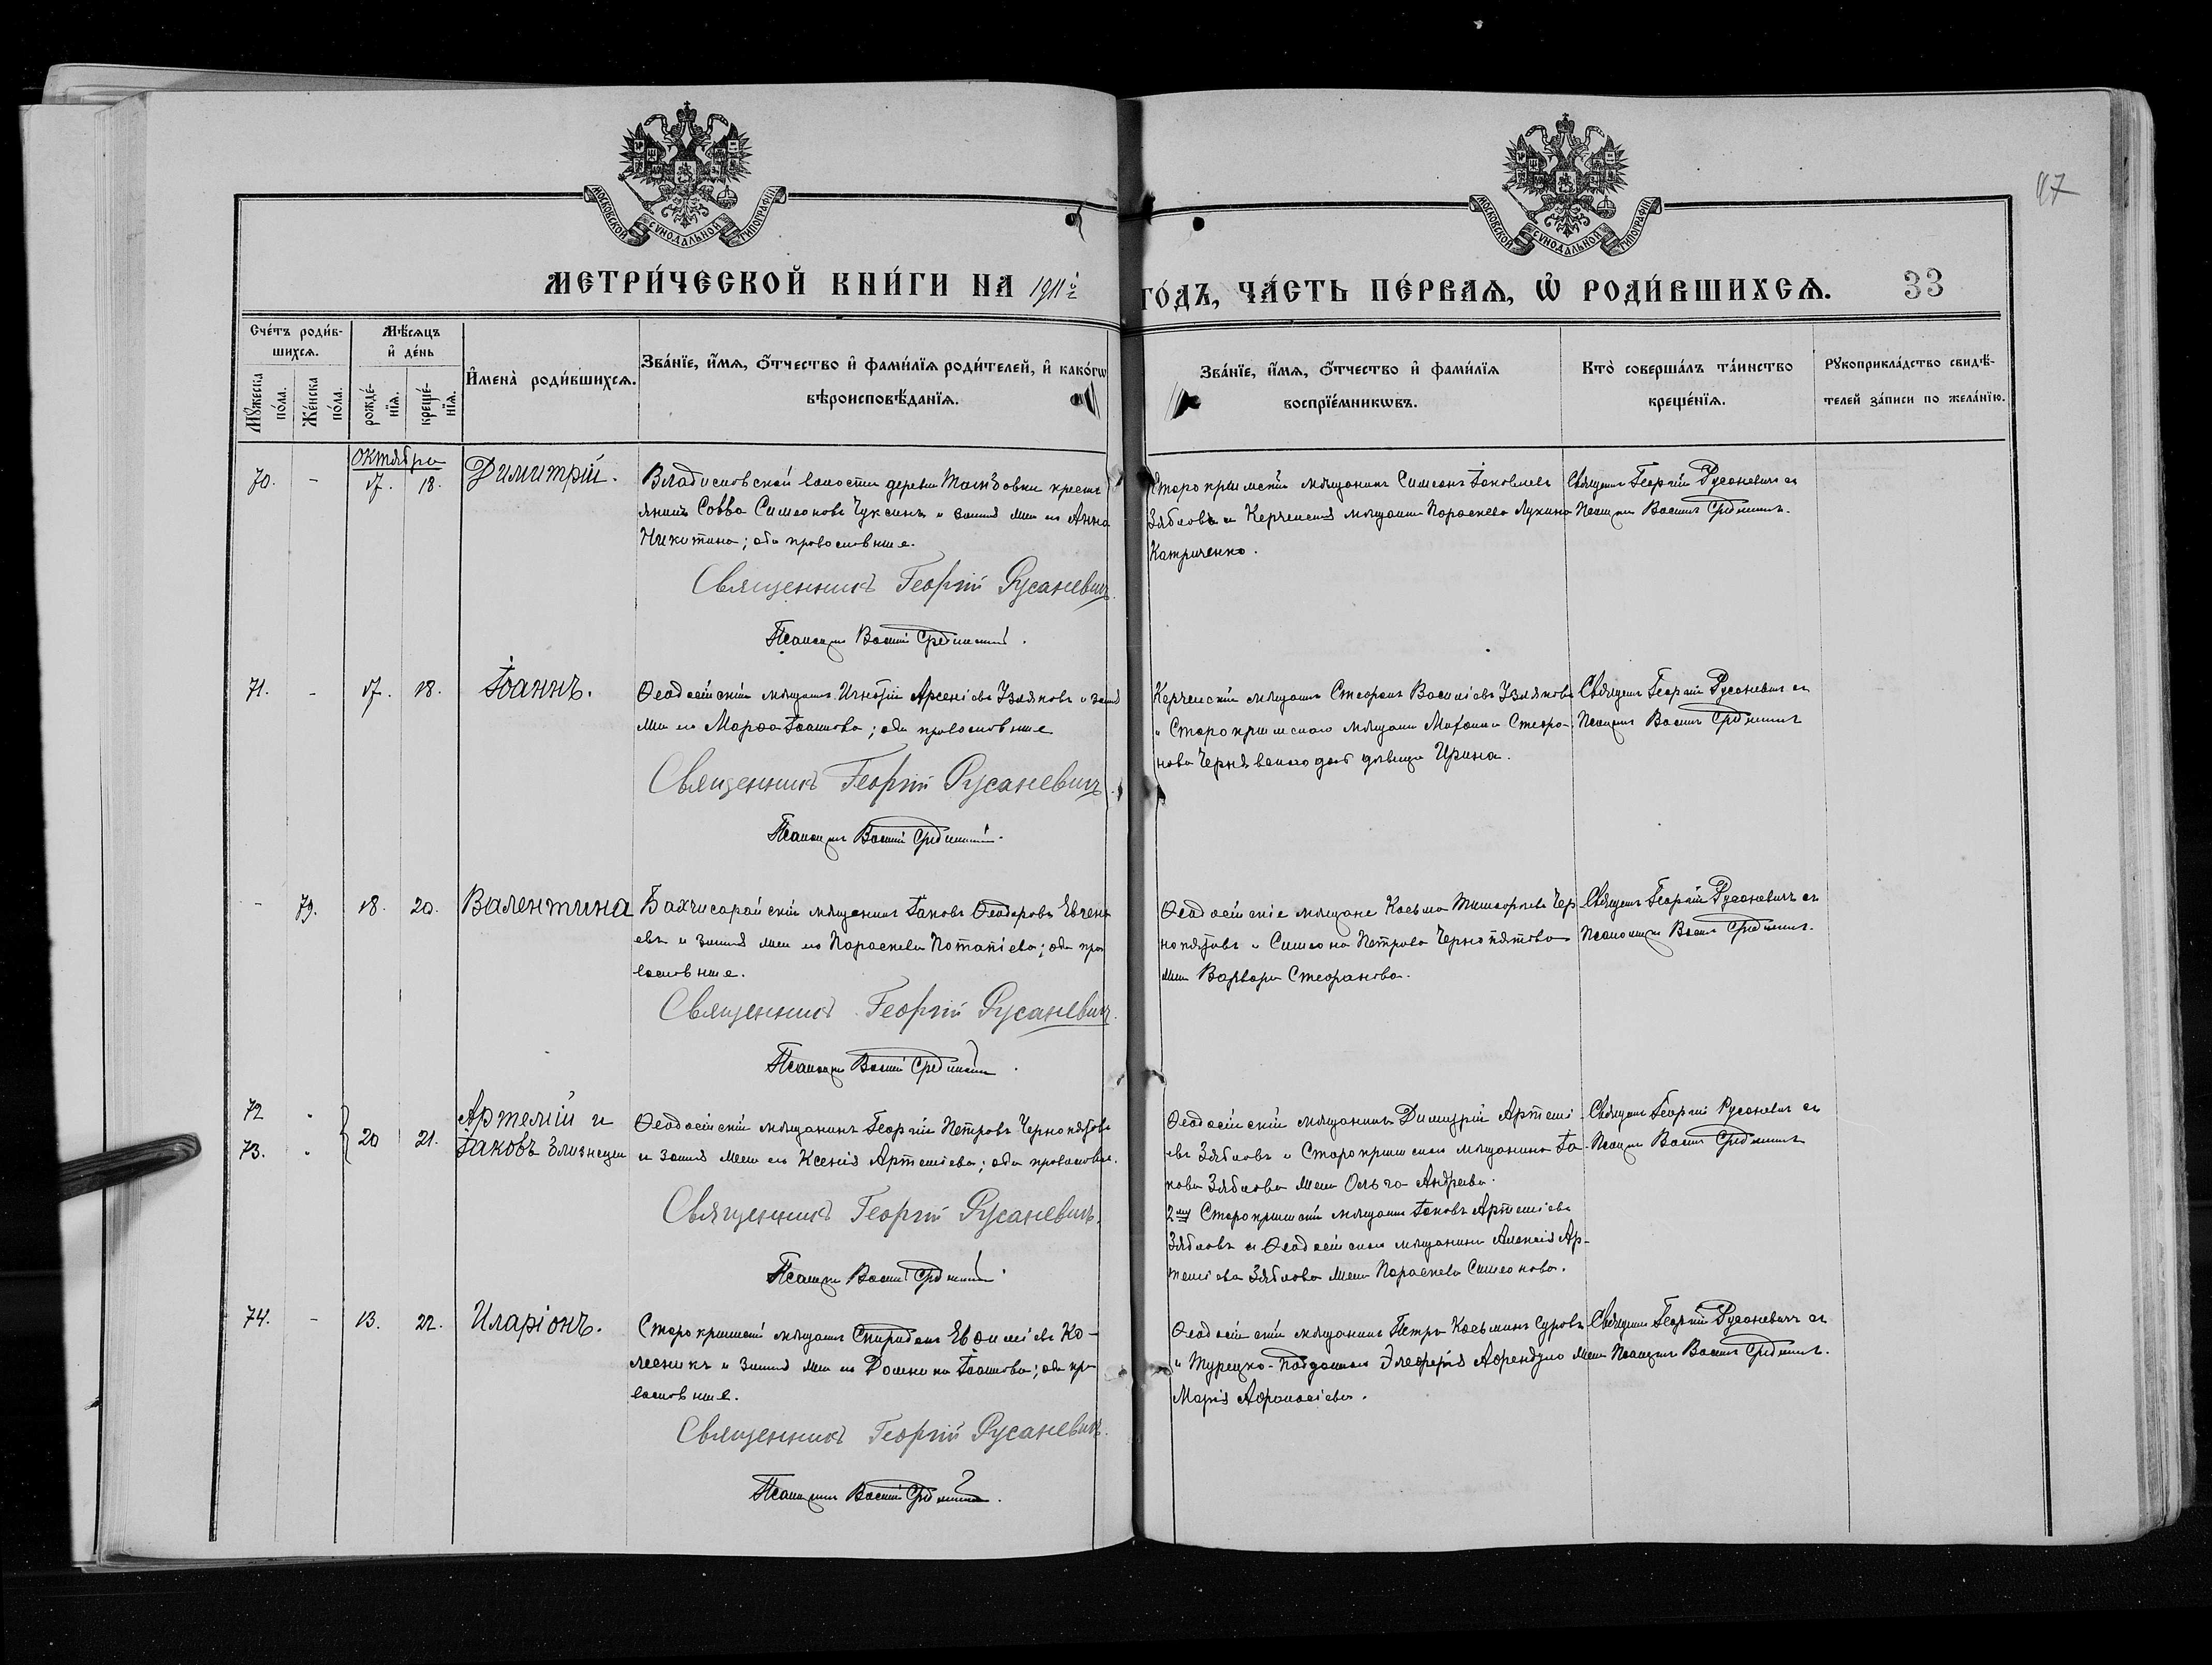 МОСКОВСКОЙ СѴНОДАЛЬНОЙ ТИПОГРАФІИ
МОСКОВСКОЙ СѴНОДАЛЬНОЙ ТИПОГРАФІИ
97
МЕТРИ́ЧЕСКОЙ КНИ́ГИ НА 1911й
ГО́ДЪ, ЧА́СТЬ ПЕ́РВАѦ, Ѡ҆ РОДИ́ВШИХСѦ.
33
Сче́тъ роди́в-
шихсѧ.
Мꙋ́жеска по́ла.
Же́нска по́ла.
Мѣ́сѧцъ
и҆ де́нь
рожде́-нїѧ.
креще́-нїѧ.
И҆мена̀ роди́вшихсѧ.
Зва́нїе, и҆́мѧ, ѻ҆́тчество и҆ фами́лїѧ роди́телей, и҆ како́гѡ
вѣроисповѣ́данїѧ.
Зва́нїе, и҆́мѧ, ѻ҆́тчество и҆ фами́лїѧ
воспрїе́мникѡвъ.
Кто̀ соверша́лъ та́инство
креще́нїѧ.
Рꙋкоприкла́дство свидѣ́-
телей за́писи по жела́нїю.
Октября
70. - 17. 18. Димитрій.
Владиславской волости деревни
янинъ Савва Симеоновъ Чуксинъ и законная жена его Анна
Никитина; оба православные.
Священникъ Георгій Русаневичъ.
Псаломщикъ Василій Срединскій.
Старокрымскій мѣщанинъ Симеонъ Іаковлевъ
Зябловъ и Керченская мѣщанка Параскева Лукина
Катриченко.
Священникъ Георгій Русаневичъ съ
Псаломщ. Василіемъ Срединскимъ.
71. - 17. 18. Іоаннъ.
Ѳеодосійскій мѣщанинъ Игнатій Арсеніевъ Узляковъ и законная
жена его Марѳа Іоаннова; оба православные
Священникъ Георгій Русаневичъ.
Псаломщикъ Василій Срединскій.
Керченскій мѣщанинъ Стефанъ Василіевъ Узляковъ
и Старокрымскаго мѣщанина Стефа-
нова Чернявскаго дочь дѣвица Ирина.
Священникъ Георгій Русаневичъ съ
Псаломщ. Василіемъ Срединскимъ
- 79. 18. 20. Валентина
Бахчисарайскій мѣщанинъ Іаковъ Ѳеодоровъ
евъ и законная жена его Параскева Потапіева; оба пра
вославные.
Священникъ Георгій Русаневичъ.
Псаломщикъ Василій Срединскій.
Ѳеодосійскіе мѣщане Косьма Тимоѳеевъ Чер-
нопятовъ и Симеона Петрова Чернопятова
жена Варвара Стефанова.
Священникъ Георгій Русаневичъ съ
Псаломщикомъ Василіемъ Срединскимъ.
72 -
73. - 20 21. Артемій и
Іаковъ близнецы
Ѳеодосійскій мѣщанинъ Георгій Петровъ Чернопятовъ
и законная жена его Ксенія Артеміева; оба православные.
Священникъ Георгій Русаневичъ.
Псаломщикъ Василій Срединскій.
Ѳеодосійскій мѣщанинъ Димитрій Артемі-
евъ Зябловъ и Старокрымскаго мѣщанина Іа-
кова Зяблова жена Ольга Андреева.
2му Старокрымскій мѣщанинъ Іаковъ Артеміевъ
Зябловъ и Ѳеодосійскаго мѣщанина Алексія Ар-
теміева Зяблова жена Параскева Симеонова.
Священникъ Георгій Русаневичъ съ
Псаломщ. Василіемъ Срединскимъ
74. - 13. 22. Иларіонъ.
Старокрымскій мѣщанинъ Спиридонъ Евѳиміевъ Ко-
лесникъ и законная жена его Домника Іоаннова; оба пра
вославные.
Священникъ Георгій Русаневичъ.
Псаломщикъ Василій Срединскій.
Ѳеодосійскій мѣщанинъ Петръ Косьминъ Суровъ
и Турецко-подданнаго Элефтерія Афендуло жена
Марія Аѳанасіева.
Священникъ Георгій Русаневичъ съ
Псаломщ. Василіемъ Срединскимъ.